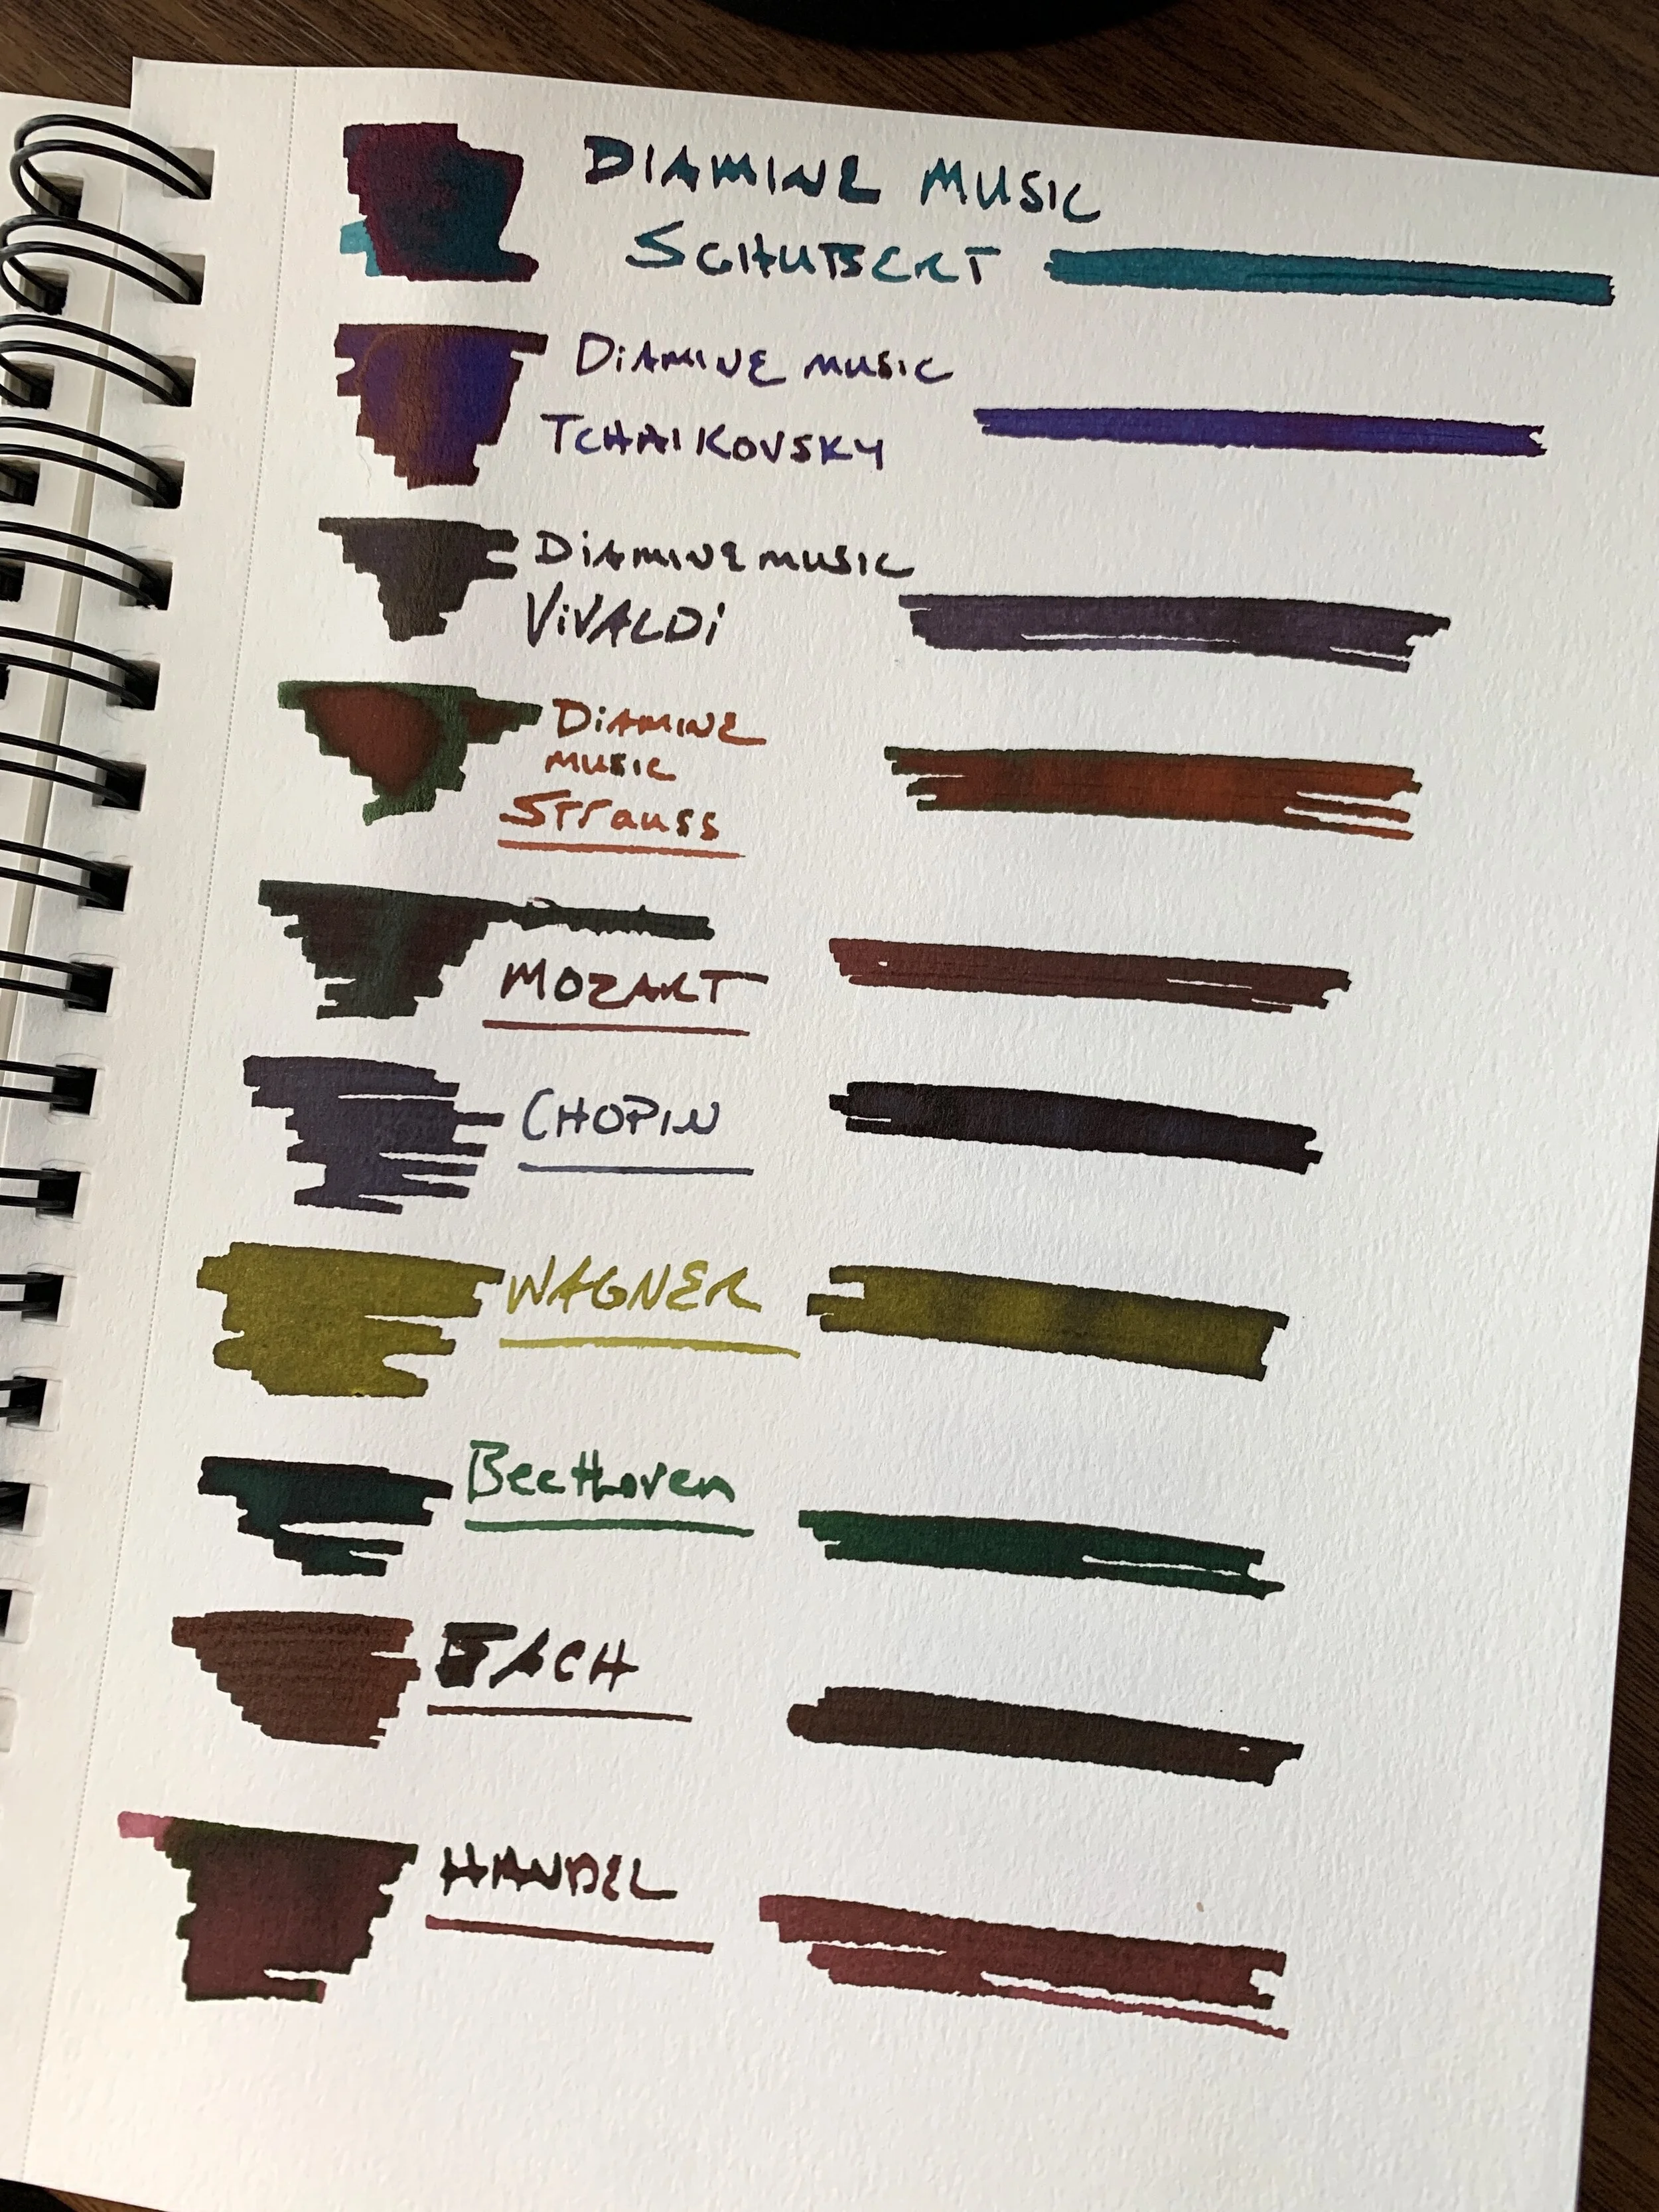 DIAMINE MUSIC
SCHUBERT
DiAMINE MUSIC
TCHAIKOVSKY
DiAMINE MUSIC
ViVALDi
DiAMINE
MUSIC
Strauss
MOZART
CHOPIN
WAGNER
BeetHoven
BACH
HANDEL